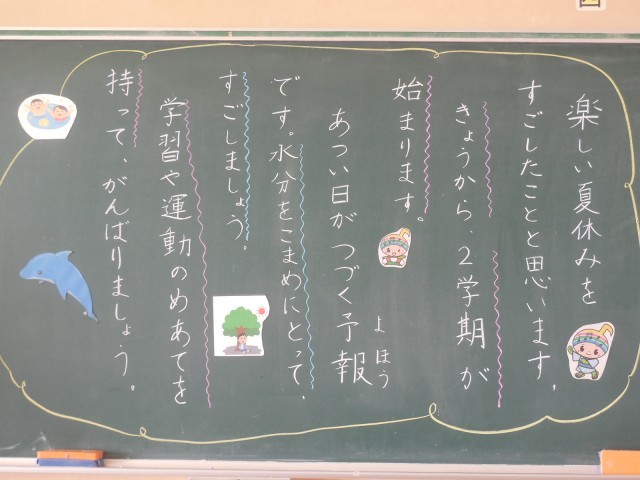 楽しい夏休みを
すごしたことと思います。
きょうから、2学期が
始まります。
あつい日がつづく予報
よほう
です。水分をこまめにとって、
すごしましょう。
学習や運動のめあてを
持って、がんばりましょう。